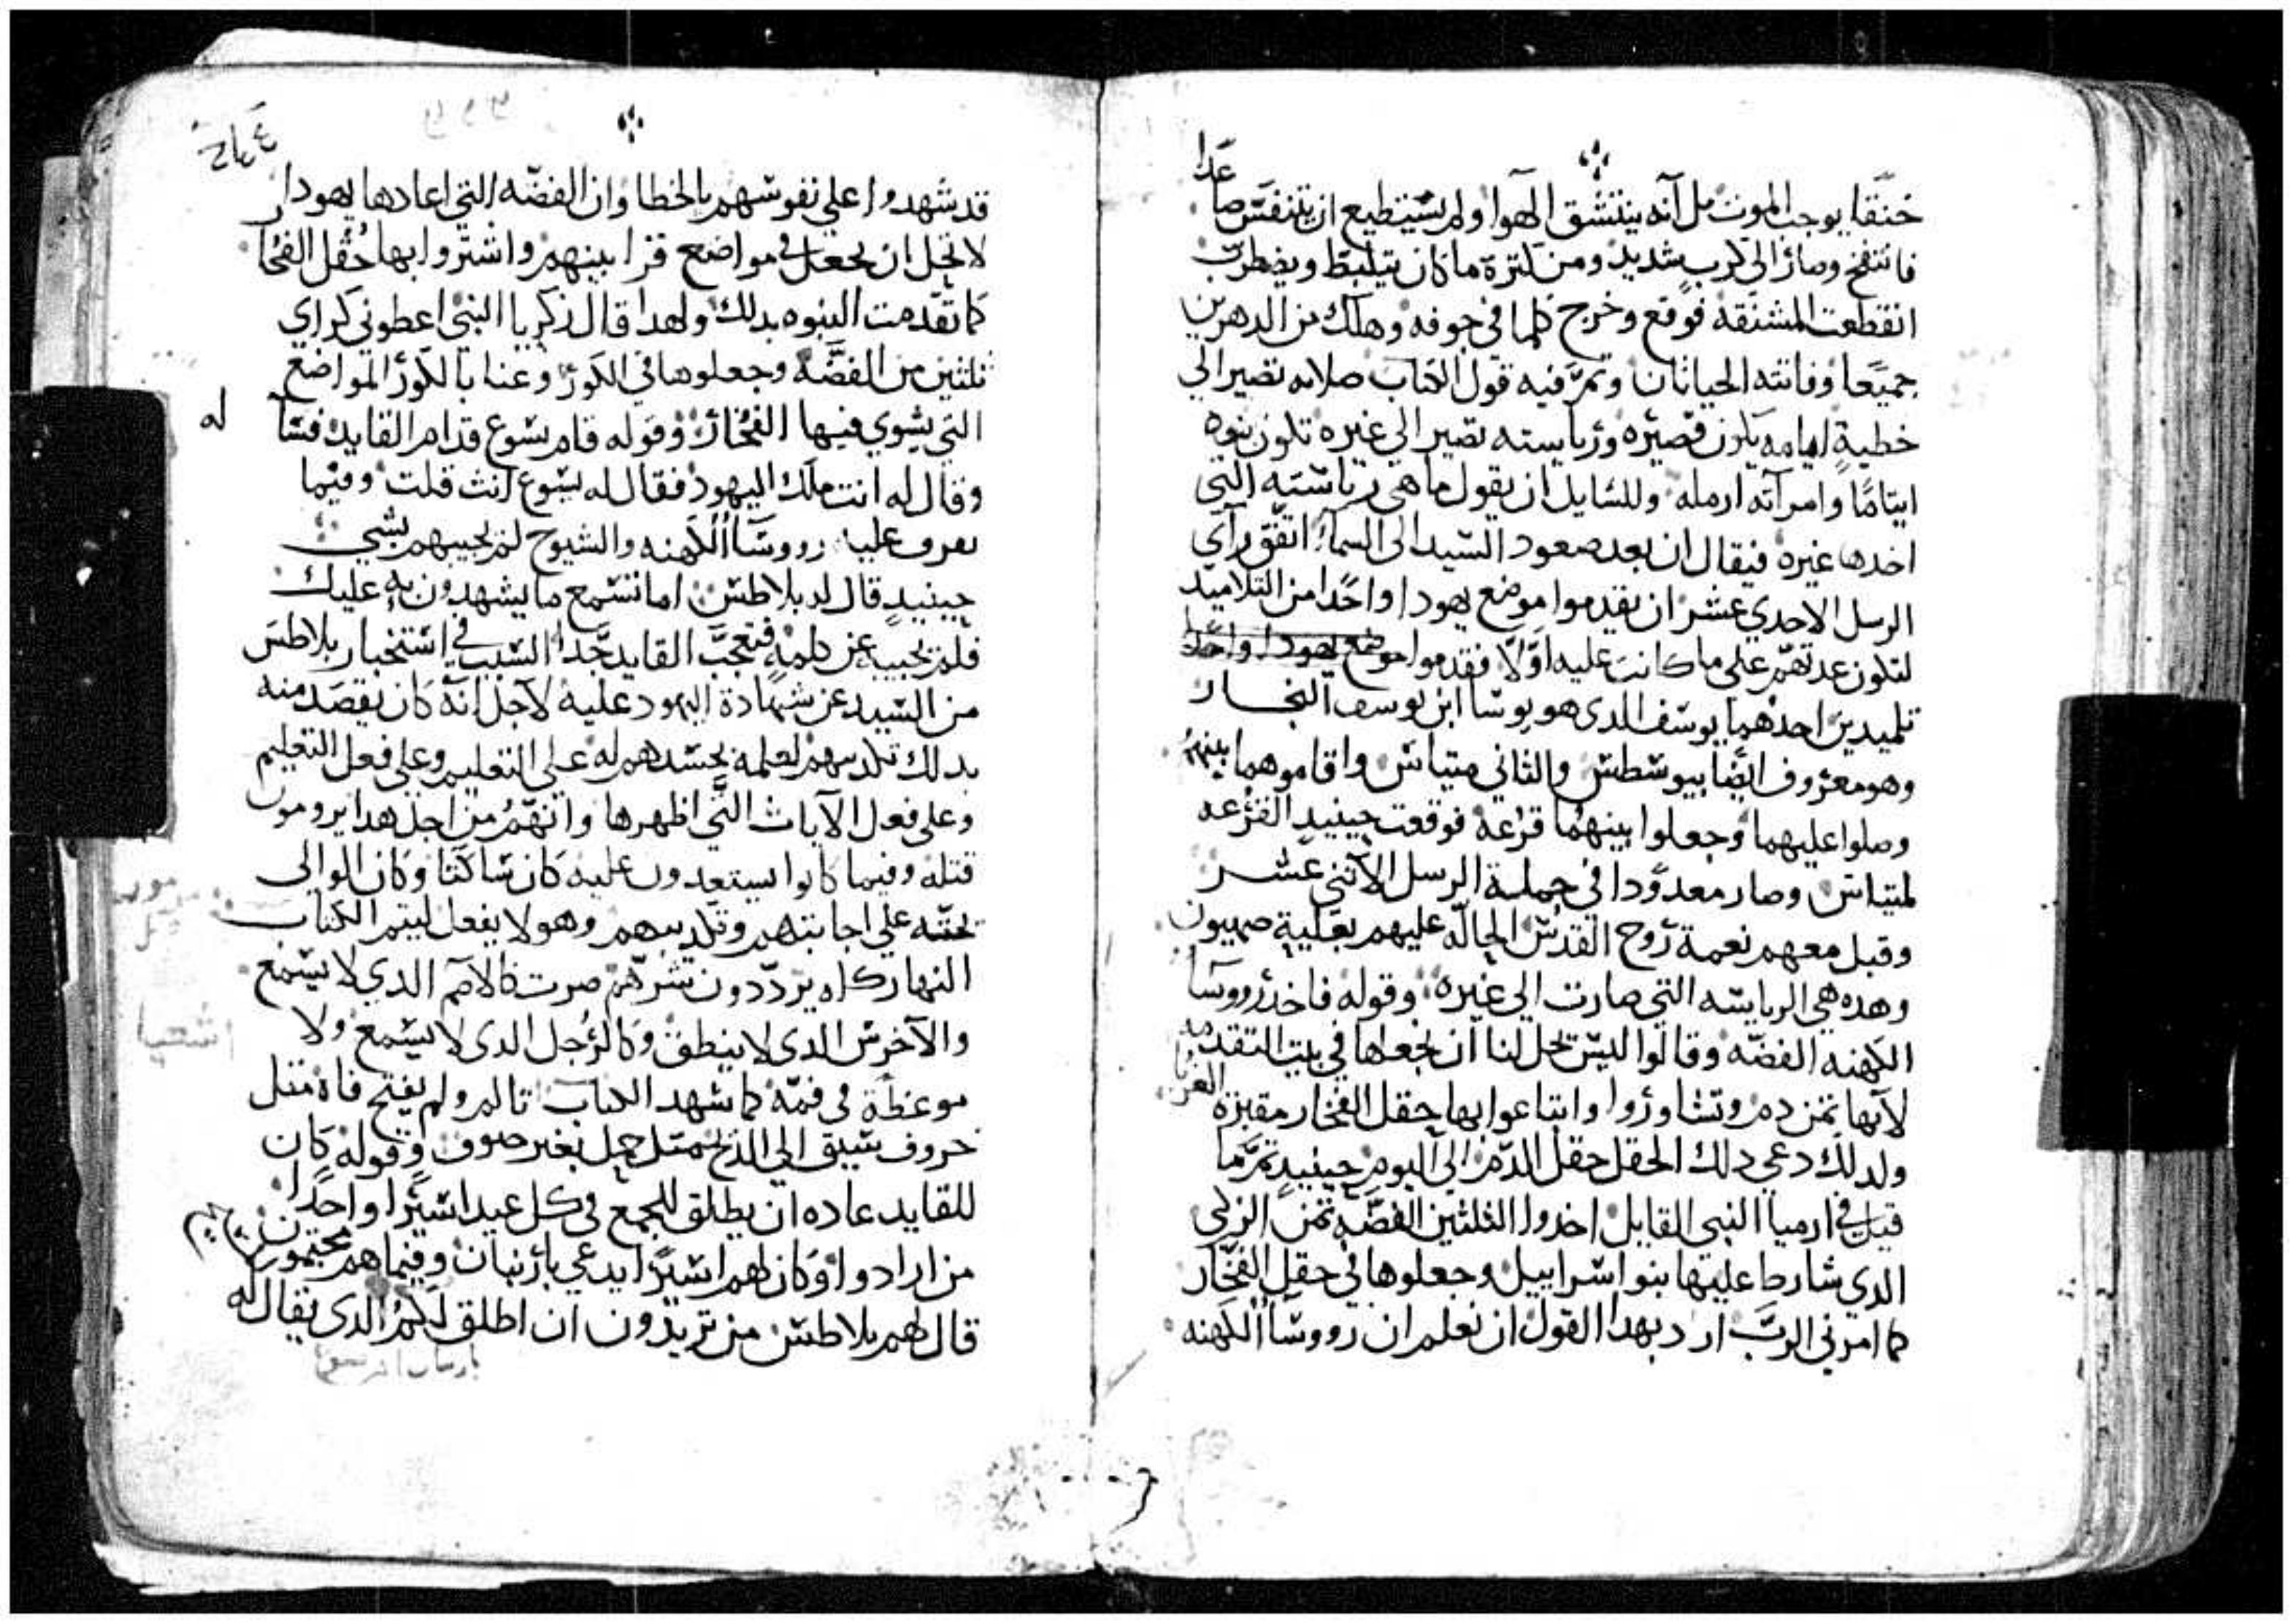 خنقا يوجب الموت بل آنه ينتشق الهوا ولم يستطيع ان يتنفس صاعدا
فانتفخ وصار الى كرب شديد ومن كترة ما كان يتلبط ويضطرب
انقطعت المشنقة فوقع وخرج كلما في جوفه وهلك من الدهرين
جميعا وفاتته الحياتان وتم فيه قول الكتاب صلاته تصير الى
خطية ايامه تكون قصيره ورياسته تصير الى غيره تكون بنوه
ايتاما وامرآته ارمله وللسايل ان يقول ما هي رياسته التي
اخدها غيره فيقال ان بعد صعود السيد الى السما اتفق رآي
الرسل الاحدي عشر ان يقدموا موضع يهودا واحدا من التلاميد
لتكون عدتهم على ما كانت عليه اولا فقدموا موضع يهودا واحدا
تلميدين احدهما يوسف الدى هو يوسا ابن يوسف النجار
وهو معروف ايضا بيوسطس والثاني متياس واقاموهما بينهم
وصلوا عليهما وجعلوا بينهما قرعة فوقعت حينيد القرعه
لمتياس وصار معدودا في جملة الرسل الاتني عشر
وقبل معهم نعمة روح القدس الحاله عليهم بعلية صهيون
وهده هي الرياسه التي صارت الى غيره وقوله فاخد رووسا
الكهنه الفضه وقالوا ليس تحل لنا ان نجعلها في بيت التقدمه
لآنها تمن دم وتشاوروا وابتاعوا بها حقل الفخار مقبرة الغربا
ولدلك دعي دلك الحقل حقل الدم الى اليوم حينيد تم ما
قيل في ارميا النبي القايل اخدوا الثلثين الفضه تمن الزكي
الدي شارط عليها بنوا اسراييل وجعلوها في حقل الفخار
كما امرني الرب اراد بهدا القول ان نعلم ان رووسا الكهنه
٢٤٤
قد شهدوا على نفوسهم بالخطا وان الفضه التي اعادها يهودا
لا تحل ان تجعل في مواضع قرابينهم واشتروا بها حقل الفخار
كما تقدمت النبوه بدلك ولهدا قال زكريا النبي اعطوني كراي
ثلثين من الفضة وجعلوها في الكور وعنا بالكور المواضع
التي يشوي فيها الفخار وقوله قام يسوع قدام القايد فسآله
وقال له انت ملك اليهود فقال له يسوع انت قلت وفيما
يعرف عليه رووسا الكهنه والشيوخ لم يجيبهم بشي
حينيد قال له بلاطس اما تسمع ما يشهدون به عليك
فلم يجيبه عن كلمة فتعجب القايد جدا السبب في استخبار بلاطس
من السيد عن شهادة اليهود عليه لاجل انه كان يقصد منه
بدلك تكديبهم لعلمه بحسدهم له على التعليم وعلى فعل التعليم
وعلى فعل الآيات التي اظهرها وانهم من اجل هدا يرومون
قتله وفيما كانوا يستعدون عليه كان ساكتا وكان الوالى
يحته علي اجابتهم وتكديبهم وهو لا يفعل ليتم الكتاب
النهار كله يرددون شرهم صرت كالاصم الدي لا يسمع
والآخرس الدى لا ينطق وكالرجل الدى لا يسمع ولا
موعظة في فمه كما شهد الكتاب تالم ولم يفتح فاه متل
خروف سيق الى الدبح متل حمل بغير صوف وقوله كان
للقايد عاده ان يطلق للجمع في كل عيد اسيرا واحدا
من ارادوا وكان لهم اسيرا يدعي بارنبان وفيما هم مجتمعون
قال لهم بلاطس من تريدون ان اطلق لكم الدى يقال له
اشعيا